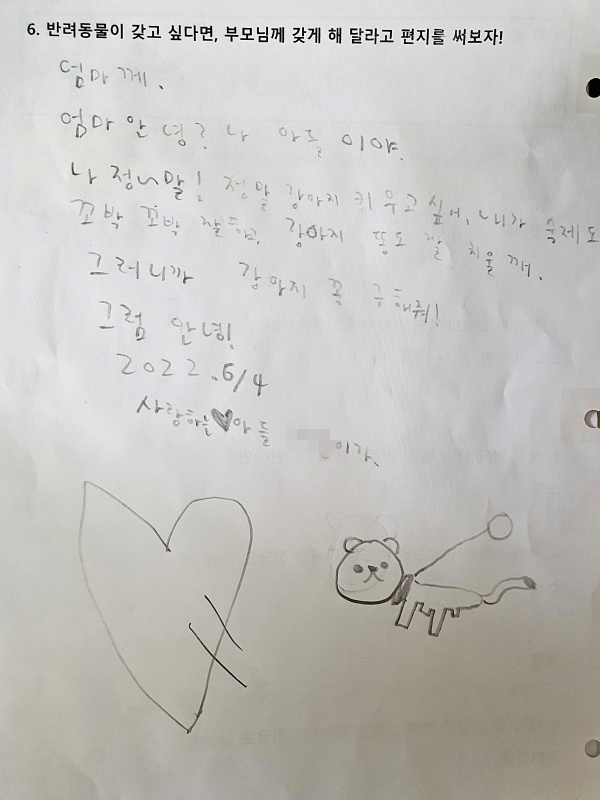 6. 반려동물이 갖고 싶다면, 부모님께 갖게 해 달라고 편지를 써보자!
엄마께.
엄마 안녕? 나 아들이야.
나 정~말! 정말 강아지 키우고 싶어, 내가 숙제도
꼬박 꼬박 잘 하고, 강아지 똥도 잘 치울께.
그러니까 강아지 꼭 구해줘!
그럼 안녕!
2022.6/4
사랑하는♥아들 이가.